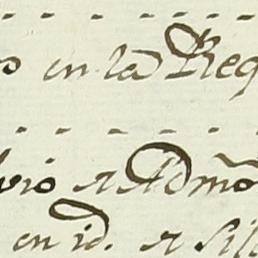 en la Req
vio a Admo
en id. a Sil